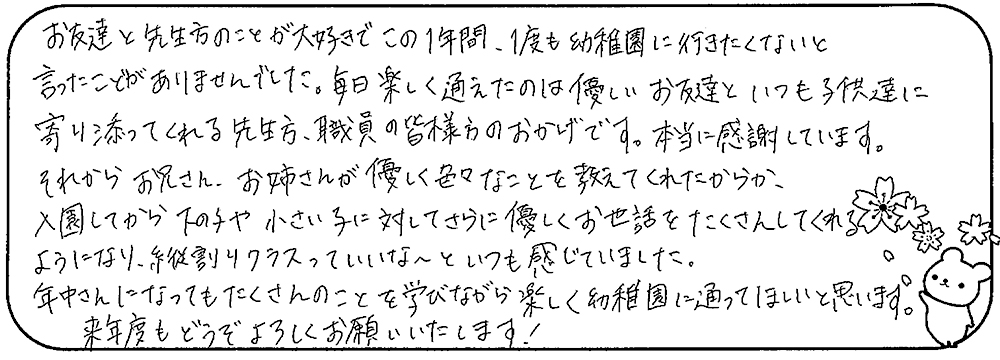 お友達と先生方のことが大好きでこの1年間、1度も幼稚園に行きたくないと
言ったことがありませんでした。毎日楽しく通えたのは優しいお友達といつも子供達に
寄り添ってくれる先生方、職員の皆様方のおかげです。本当に感謝しています。
それからお兄さん、お姉さんが優しく色々なことを教えてくれたからか、
入園してから下の子や小さい子に対してさらに優しくお世話をたくさんしてくれる
ようになり、縦割りクラスっていいな〜といつも感じていました。
年中さんになってもたくさんのことを学びながら楽しく幼稚園に通ってほしいと思います。
来年度もどうぞよろしくお願いいたします!